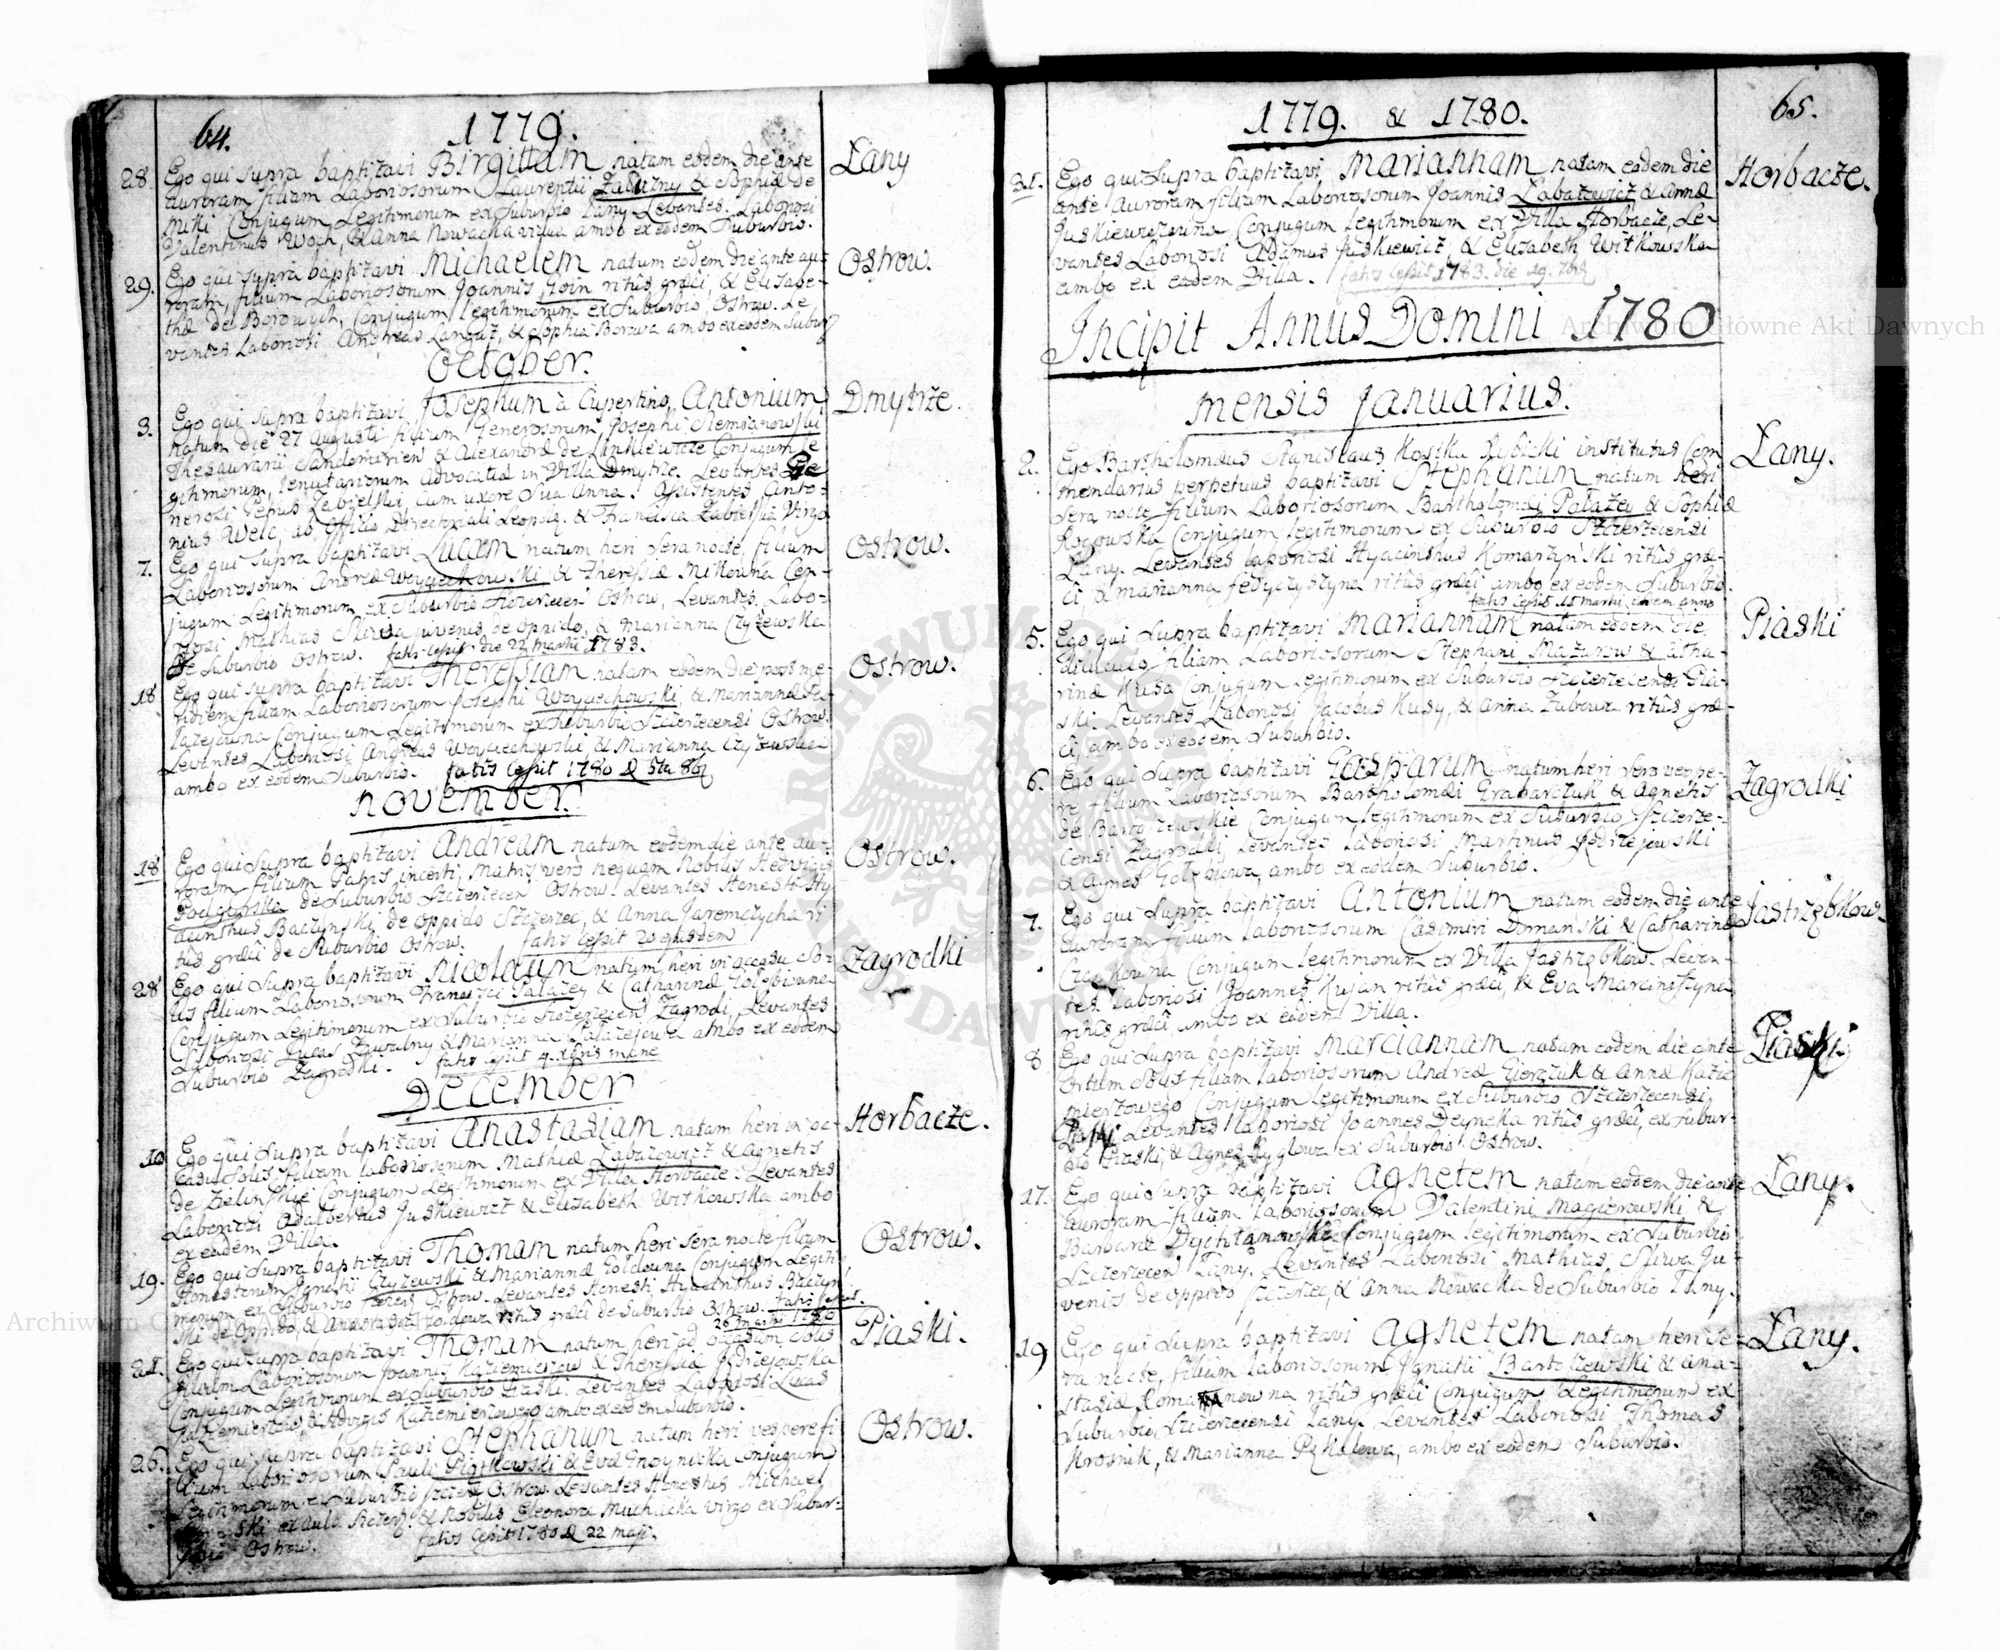 64.
1779.
28. Ego qui supra baptizavi Birgittam natam eodem die ante Łany
auroram filiam Laboriosorum Laurentii Zaluzny & Sophiæ de
Miki Conjugum Legitimorum ex Suburbio Łany Levantes Laboriosi
Valentinus Woch, & Anna Nowacka vidua ambo ex eodem Suburbio.
29. Ego qui supra baptizavi Michaelem natum eodem die ante au- Ostrow.
roram, filium Laboriosorum Joannis Goin ritûs græci, & Elisabe-
thæ de Borowych, Conjugum legitimorum ex Suburbio Ostrow. Le-
vantes Laboriosi Andreas & Sophia Borowa ambo ex eodem Subur
October.
3. Ego qui supra baptizavi Josephum à Cupertino, Antonium Dmytrże.
natum die 27 Augusti filium Generosorum Josephi Siemianowski
Thesaurarii & Alexandræ de Linkiewicze Conjugum Le
gitimorum, Advocatiæ in Villa Dmytrze. Levantes Ge
nerosi Zabielski, cum uxore Sua Anna. Assistentes Anto-
nius Welc, ab Officio & Francisca Zabielska Virgo
7. Ego qui supra baptizavi Lucam natum heri sera nocte, filium Ostrow.
Laboriosorum Andreæ Woyciechowski & Theresiæ Mikowna Con-
jugum Legitimorum ex Suburbio Ostrow, Levantes Labo-
riosi Mathias juvenis de oppido, & Marianna Czyżewska
de Suburbio Ostrow. fatis cessit die 22 martii 1783.
18. Ego qui supra baptizavi Theressiam natam eodem die post me- Ostrow.
ridiem filiam Laboriosorum Josephi Woyciechowski, & Mariannæ Pa-
łażejowna Conjugum Legitimorum ex Suburbio Szczerzecensi Ostrow.
Levantes Laboriosi Andreas Woyciechowski & Marianna Czyżewska
ambo ex eodem Suburbio. fatis cessit 1780 d 8bris
November.
18. Ego qui supra baptizavi Andream natum eodem die ante au- Ostrow.
roram filium Patris incerti, Matris verò nequam Nobilis Hedvigis
de Suburbio Ostrow. Levantes Honesti Hy
acinthus Baczynski de oppido Szczerzec, & Anna Jaremczycha ri
tûs græci de Suburbio Ostrow. fatis cessit 20 ejusdem
28. Ego qui supra baptizavi Nicolaum natum heri in occasu So- Zagrodki
lis filium Laboriosorum Francisci Pałażey & Catharinæ Gołębiowna
Conjugum Legitimorum ex Suburbio Zagrodki, Levantes
Laboriosi Lucas Zwalny & Marianna Pałażejowa ambo ex eodem
Suburbio Zagrodki. fatis cessit 4 mane
December
10. Ego qui supra baptizavi Anastasiam natam heri in oc- Horbacże.
casu solis filiam laboriosorum Mathiæ Łabażowicz & Agnetis
de Zielinskie Conjugum Legitimorum ex Villa Horbacże. Levantes
Laboriosi Adalbertus Juskiewicz & Elisabeth Witkowska ambo
ex eadem Villa.
19. Ego qui supra baptizavi Thomam natum heri sera nocte filium Ostrow.
Honestorum Ignatii Czyżewski & Mariannæ Gołdowna Conjugum Legiti-
morum ex Suburbio Ostrow. Levantes Honesti Hyacinthus Baczyn
ski de oppido, & Anastasia ritûs græci de Suburbio Ostrow. fatis cessit
26 martii 1780
21. Ego qui supra baptizavi Thomam natum heri ad occasum Solis Piaski.
filium Laboriosorum Joannis Kaziemierzow & Theresiæ Jędrzejowska
Conjugum Legitimorum ex Suburbio Piaski. Levantes Laboriosi Lucas
& Advigis Kaziemierzowego ambo ex eodem Suburbio.
26. Ego qui supra baptizavi Stephanum natum heri vespere fi Ostrow.
lium Laboriosorum Pauli Piątkowski & Eva Gnoynicka Conjugum
Legitimorum ex Suburbio Ostrow. Levantes Honestus Michael
ski ex aula & Nobilis Eleonora Muchicka Virgo ex Subur-
bio Ostrow. fatis cessit 1780 d 22 maji.
65.
1779. & 1780.
31. Ego qui Supra baptizavi Mariannam natam eodem die Horbacże.
ante Auroram filiam Laboriosorum Joannis Łabazowicz & Annæ
Juskiewiczowna Conjugum legitimorum ex Villa Horbacże, Le-
vantes Laboriosi Adamus Juskiewicz, & Elisabeth Witkowska
ambo ex eadem Villa. fatis cessit 1783. die 19.
Incipit Annus Domini 1780
Mensis Januarius.
2. Ego Bartholomæus Stanislaus Kostka Rybicki institutus Com Łany.
mendarius perpetuus baptizavi Stephanum natum heri
sera nocte filium Laboriosorum Bartholomæi Pałażey & Sophiæ
Rogowska Conjugum legitimorum ex Suburbio Szczerzecensi
Łany. Levantes laboriosi Hyacinthus Komarzynski ritûs græ-
ci, & Marianna Fedyczyszyna ritûs græci ambo ex eodem Suburbio.
fatis cessit 15 martii eodem anno
5. Ego qui supra baptizavi Mariannam natam eodem die Piaski
diluculo filiam Laboriosorum Stephani Mazurow & Catha-
rinæ Kusa Conjugum Legitimorum ex Suburbio Szczerzecensi Pia-
ski Levantes Laboriosi Jacobus Kusy, & Anna Zubowa ritûs græ-
ci, ambo ex eodem Suburbio.
6. Ego qui supra baptizavi Gasparum natum heri sero vespe- Zagrodki
re filium Laboriosorum Bartholomæi Grabarczuk & Agnetis
de Bartoszewskie Conjugum legitimorum ex Suburbio Szczerze-
censi Zagrodki Levantes laboriosi Martinus Jędrzejowski
& Agnes Gołębiowa, ambo ex eodem Suburbio.
7. Ego qui supra baptizavi Antonium natum eodem die ante Jastrzębkow.
auroram filium laboriosorum Casimiri Domanski & Catharinæ
Czaykowna Conjugum legitimorum ex Villa Jastrzębkow. Levan-
tes laboriosi Joannes Kujan ritûs græci, & Eva Marciniszyna
ritûs græci, ambo ex eadem Villa.
8 Ego qui supra baptizavi Marciannam natam eodem die ante Piaski.
Ortum Solis filiam laboriosorum Andreæ Gierczuk & Annæ Kazie
mierzowego Conjugum legitimorum ex Suburbio Szczerzecensi
Piaski Levantes laboriosi Joannes Deyneka ritûs græci, ex Subur-
bio Piaski, & Agnes Ryglowa ex Suburbio Ostrow.
17. Ego qui supra baptizavi Agnetem natam eodem die ante Łany.
auroram filiam laboriosorum Valentini Magierowski &
Barbaræ Dychtanowskie Conjugum legitimorum ex Suburbio
Szczerzecen Łany. Levantes Laboriosi Mathias Sliwa Ju-
venis de oppido Szczerzec, & Anna Nowacka de Suburbio Łany.
19 Ego qui supra baptizavi Agnetem natam heri se- Łany.
ra nocte, filiam laboriosorum Ignatii Bartoszewski & Ana-
stasiæ Romanowna ritûs græci Conjugum Legitimorum ex
Suburbio Szczerzecensi Łany. Levantes Laboriosi Thomas
Krosnik, & Marianna Pękalowa, ambo ex eodem Suburbio.
Archiwum Główne Akt Dawnych